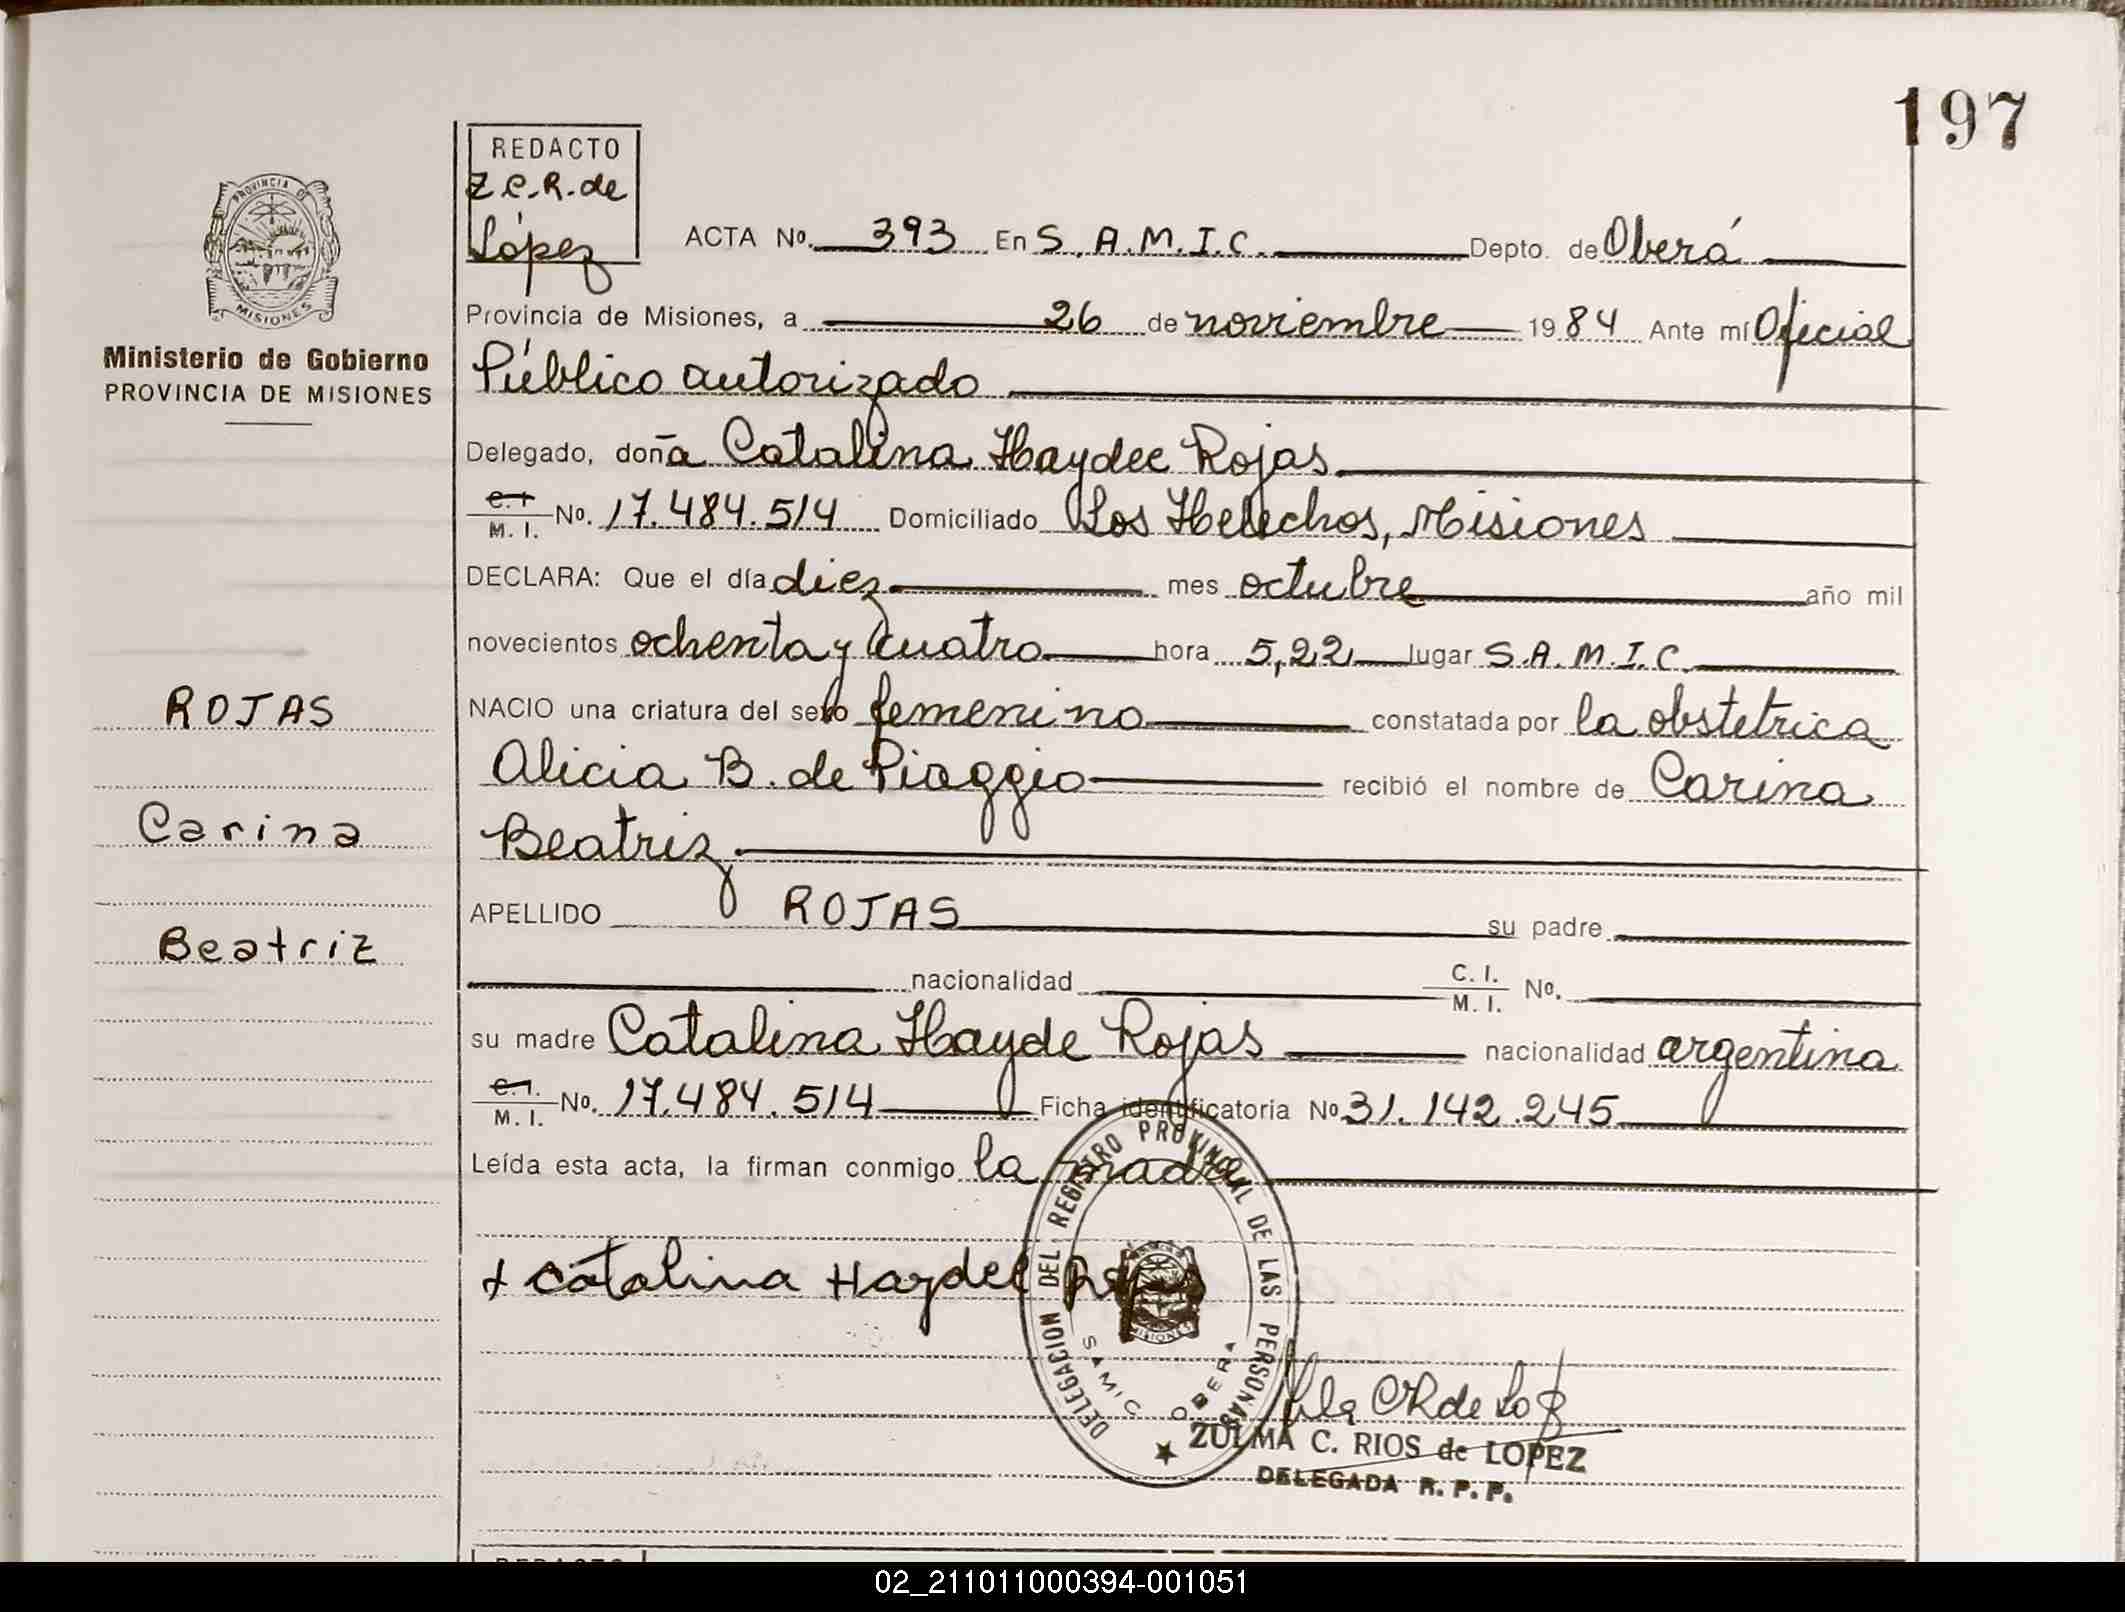 197
REDACTO
Z C.R. de
López
PROVINCIA DE
MISIONES
Ministerio de Gobierno
PROVINCIA DE MISIONES
ACTA Nº. 393 En S. A.M.I.C. Depto. de Oberá
Provincia de Misiones, a 26 de noviembre 1984 Ante mí Oficial
Público autorizado
Delegado, doña Catalina Haydee Rojas
C. I. / M. I. Nº. 17.484.514 Domiciliado Los Helechos, Misiones
DECLARA: Que el día diez mes octubre año mil
novecientos ochenta y cuatro hora 5,22 lugar S.A.M.I.C.
NACIO una criatura del sexo femenino constatada por la obstetrica
Alicia B. de Piaggio recibió el nombre de Carina
Beatriz
APELLIDO ROJAS su padre
nacionalidad C. I. / M. I. Nº.
su madre Catalina Hayde Rojas nacionalidad argentina
C. I. / M. I. Nº. 17.484.514 Ficha identificatoria Nº 31.142.245
Leída esta acta, la firman conmigo la madre
ROJAS
Carina
Beatriz
+ Catalina Haydee Rojas
DELEGACION DEL REGISTRO PROVINCIAL DE LAS PERSONAS
MISIONES
SAMIC OBERA
ZULMA C. RIOS de LOPEZ
DELEGADA R. P. P.
REDACTO
02_211011000394-001051